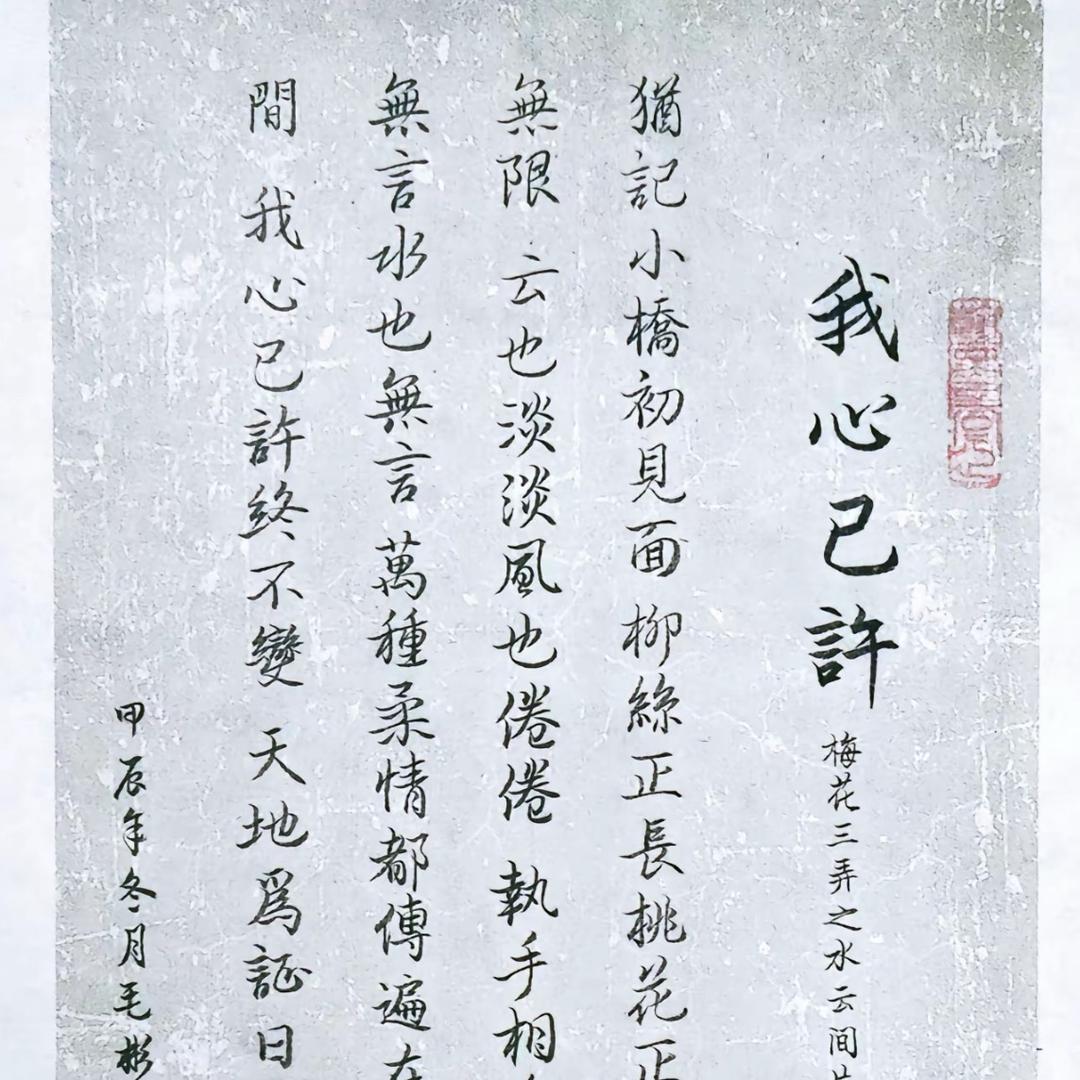 我心已許
梅花三弄之水云間
猶記小橋初見面 柳絲正長桃花正
無限 云也淡淡風也倦倦 執手相
無言水也無言萬種柔情都傳遍在
間 我心已許終不變 天地爲証日
甲辰年冬月毛彬